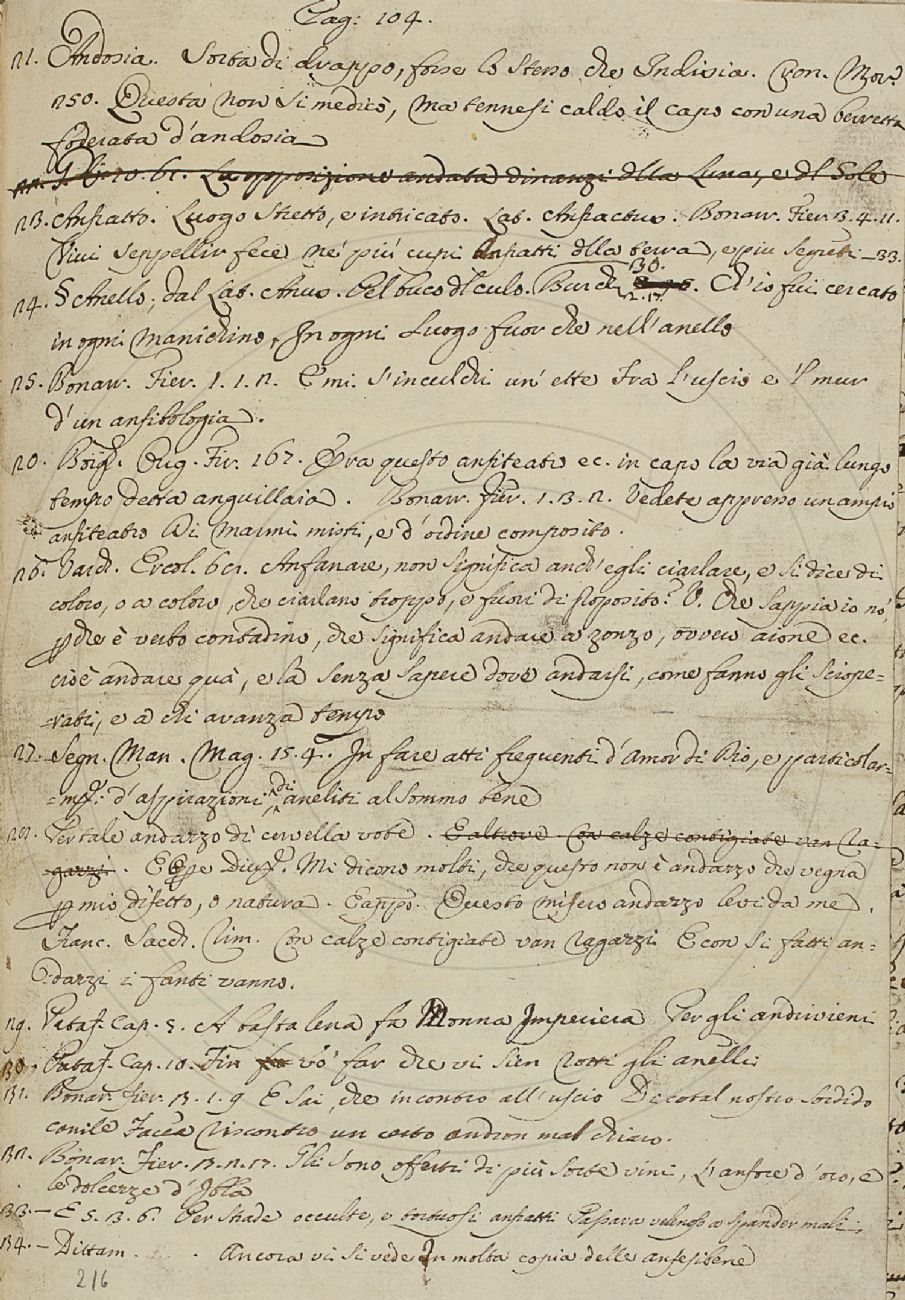 Pag: 104.
21. Andosia. Sorta di drappo, forse lo stesso che Indisia. Cron. Mor.
250. Questa non si medicò, ma tennesi caldo il capo con una berretta
foderata d'andosia
La opposizione andata dinanzi della Luna, e del Sole
23. Anfratto. Luogo stretto, e intricato. Lat. Anfractus. Bonarr. Fier. 3. 4. 11.
Vivi seppellir fece né più cupi anfratti della terra, e più segreti – 33.
24. § Anello, dal Lat. Anus. Pel buco del culo. Burch. 2. 17. 30. Ch'io fui cercato
in ogni manichino, In ogni luogo fuor che nell'anello
25. Bonarr. Fier. 1. 1. 2. E mi s'inculchi un' ette Fra l'uscio e 'l mur
d'un anfibologia.
20. Borgh. Orig. Fir. 167. Era questo anfiteatro ec. in capo la via già lungo
tempo detta anguillaia. Bonarr. Fier. 1. 3. 2. Vedete appresso un ampio
anfiteatro Di marmi misti, e d'ordine composito.
26. Varch. Ercol. 61. Anfanare, non significa anch'egli ciarlare, e si dice di
coloro, o a coloro, che ciarlano troppo, e fuori di proposito? V. Che sappia io nò,
pche è verbo contadino, che significa andare a zonzo, ovvero aione ec.
cioè andare quà, e là senza sapere dove andarsi, come fanno gli sciope=
=rati, e a chi avanza tempo
27. Segn. Man. Mag. 15. 4. In fare atti frequenti d'amor di Dio, e particolar=
=mte. d'aspirazioni, di aneliti al sommo bene
Per tale andazzo di cervella vote. E altrove Con calze contigiate van ra=
=gazzi. Mi dicono molti, che questo non è andazzo che vegna
p mio difetto, o natura. E appo. Questo misero andazzo levi da me.
Franc. Sacch. Rim. Con calze contigiate van ragazzi E con si fatti an=
=dazzi i fanti vanno.
29. Pataf. Cap. 5. A basta lena fa Monna Imperiera Per gli andirivieni
30. Pataf. Cap. 10. Fin vo' far che vi sien rotti gli anelli
31. Bonar. Fier. 3. 1. 9 E sai, che incontro all'uscio Di cotal nostro sordido
canile Faceva riscontro un certo andron mal chiaro.
32. Bonar. Fier. 3. 2. 17. Gli sono offerti di più sorte vini, L'anfore d'oro, e
le dolcezze d'Ibla
33. – E 5. 3. 6. Per strade occulte, e tortuosi anfratti Passava velenoso a spander mali.
34. – Dittam. . Ancora vi si vede In molta copia delle anfesibene
216